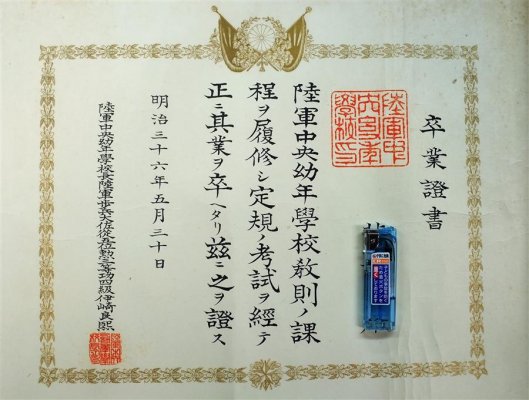 卒業證書
陸軍中
央幼年
學校印
陸軍中央幼年學校敎則ノ課
程ヲ履修シ定規ノ考試ヲ經テ
正ニ其業ヲ卒ヘタリ茲ニ之ヲ證ス
明治三十六年五月三十日
陸軍中央幼年學校長陸軍步兵大佐從五位勳三等功四級伊崎良熙